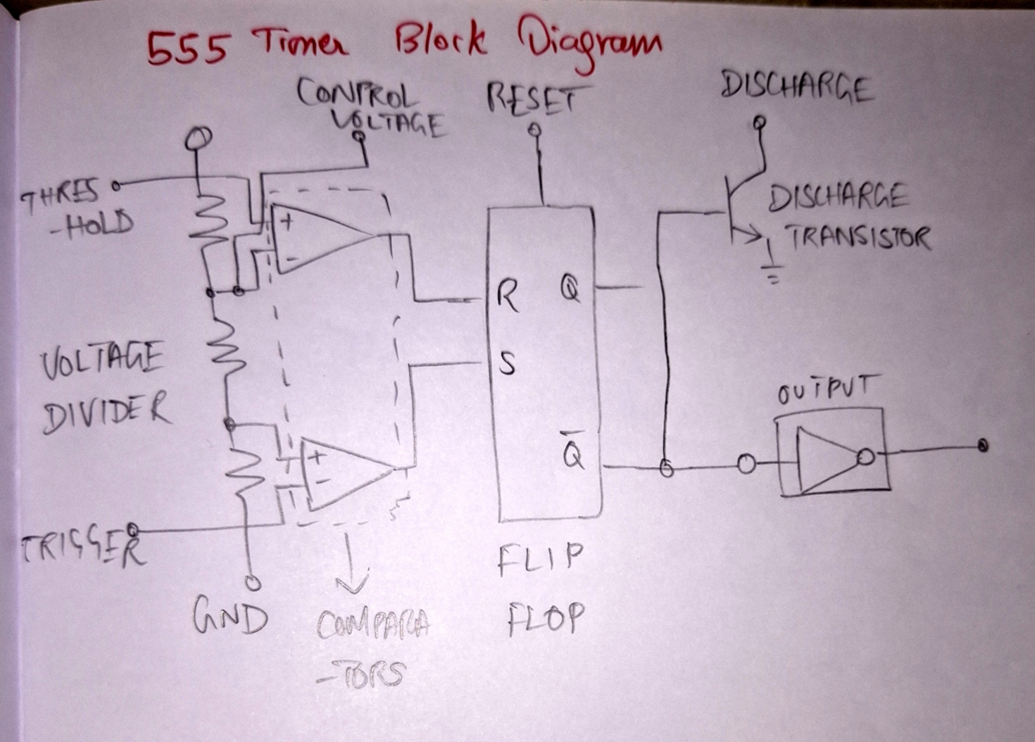 555 Timer Block Diagram
CONTROL
VOLTAGE
RESET
DISCHARGE
THRES
-HOLD
DISCHARGE
TRANSISTOR
+
-
R
Q
S
VOLTAGE
DIVIDER
OUTPUT
+
-
Q̅
TRIGGER
GND
COMPARA
-TORS
FLIP
FLOP